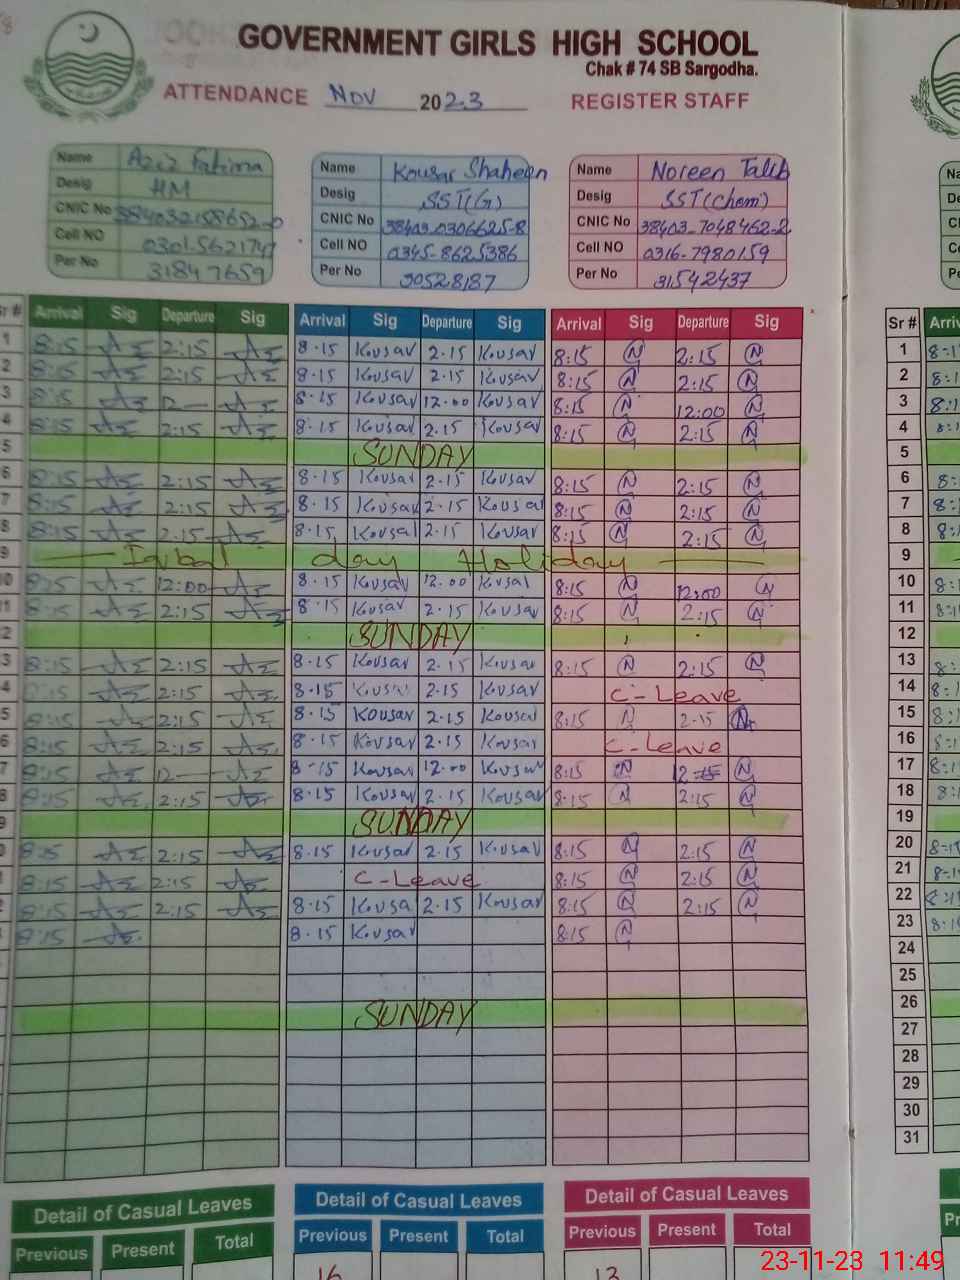 GOVERNMENT GIRLS HIGH SCHOOL
Chak # 74 SB Sargodha.
ATTENDANCE Nov 2023 REGISTER STAFF
Name Aziz Fatima
Desig HM
CNIC No
Cell NO
Per No 31847659
Name Kousar Shaheen
Desig SST(G)
CNIC No 38403-0306625-8
Cell NO 0345-8625386
Per No 30528187
Name Noreen Talib
Desig SST(Chem)
CNIC No 38403-7048462-2
Cell NO 0316-7980159
Per No 31542437
Sr # Arrival Sig Departure Sig Arrival Sig Departure Sig Arrival Sig Departure Sig Sr #
1 8:15 2:15 8.15 Kousar 2.15 Kousar 8:15 N 2:15 N 1
2 8:15 2:15 8.15 Kousar 2.15 Kousar 8:15 N 2:15 N 2
3 8:15 12 8.15 Kousar 12.00 Kousar 8:15 N 12:00 N 3
4 8:15 2:15 8.15 Kousar 2.15 Kousar 8:15 N 2:15 N 4
5 SUNDAY 5
6 8:15 2:15 8.15 Kousar 2.15 Kousar 8:15 N 2:15 N 6
7 8:15 2:15 8.15 Kousar 2.15 Kousar 8:15 N 2:15 N 7
8 8:15 2:15 8.15 Kousar 2.15 Kousar 8:15 N 2:15 N 8
9 Iqbal day Holiday 9
10 8:15 12:00 8.15 Kousar 12.00 Kousar 8:15 N 12:00 N 10
11 8:15 2:15 8.15 Kousar 2.15 Kousar 8:15 N 2:15 N 11
2 SUNDAY 12
3 8:15 2:15 8.15 Kousar 2.15 Kousar 8:15 N 2:15 N 13
4 8:15 2:15 8.15 Kousar 2.15 Kousar C-Leave 14
5 8:15 2:15 8.15 Kousar 2.15 Kousar 8:15 N 2:15 N 15
6 8:15 2:15 8.15 Kousar 2.15 Kousar C-Leave 16
7 8:15 12 8.15 Kousar 12.00 Kousar 8:15 N 12 N 17
8 8:15 2:15 8.15 Kousar 2.15 Kousar 8:15 N 2:15 N 18
9 SUNDAY 19
8:15 2:15 8.15 Kousar 2.15 Kousar 8:15 N 2:15 N 20
8:15 2:15 C-Leave 8:15 N 2:15 N 21
8:15 2:15 8.15 Kousar 2.15 Kousar 8:15 N 2:15 N 22
8:15 8.15 Kousar 8:15 N 23
24
25
SUNDAY 26
27
28
29
30
31
Detail of Casual Leaves Detail of Casual Leaves Detail of Casual Leaves
Previous Present Total Previous Present Total Previous Present Total
16 13
23-11-23 11:49